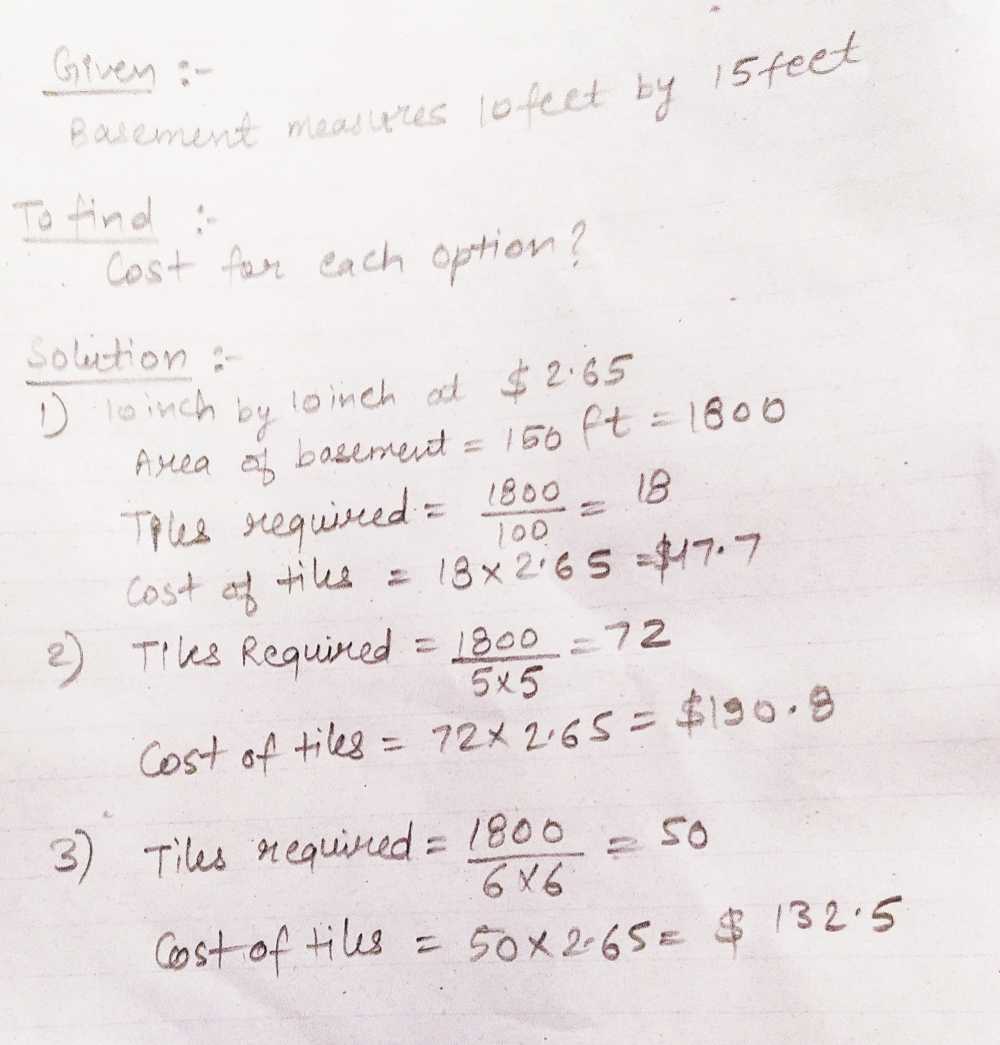 Given :-
Basement measures 10 feet by 15 feet
To find :-
Cost for each option?
Solution :-
1) 10 inch by 10 inch at $ 2.65
Area of basement = 150 ft = 1800
Tiles required = 1800/100 = 18
Cost of tiles = 18 x 2.65 = $47.7
2) Tiles Required = 1800/5x5 = 72
Cost of tiles = 72 x 2.65 = $190.8
3) Tiles required = 1800/6x6 = 50
Cost of tiles = 50 x 2.65 = $ 132.5